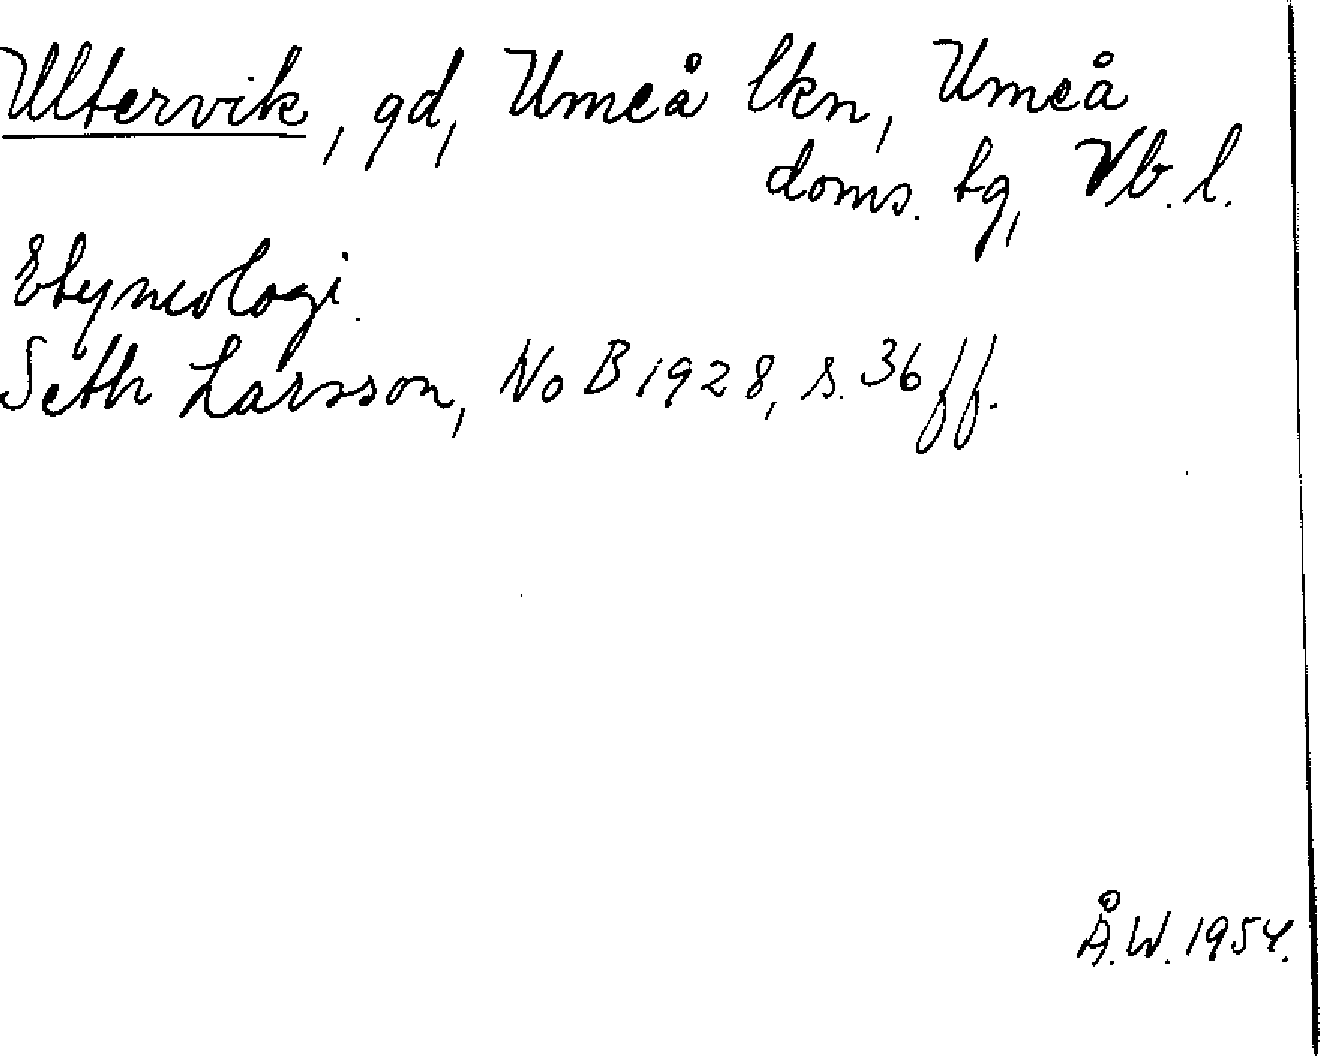 Ultervik, gd, Umeå lkn, Umeå
doms. tg, Vb. l.
Etymologi.
Seth Larsson, NoB 1928, s. 36 ff.
Å.W. 1954.